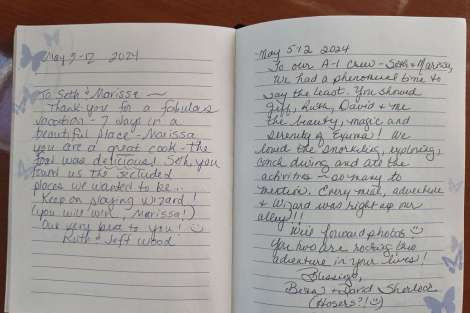 May 5-12 2024
To Seth & Marissa ~
Thank you for a fabulous
vacation - 7 days in a
beautiful place - Marissa
you are a great cook - the
food was delicious! Seth, you
found us the secluded
places we wanted to be...
Keep on playing Wizard!
(you will win, Marissa!)
Our very best to you! ☺
Ruth & Jeff Wood
May 5-12 2024
To our A-1 Crew - Seth & Marissa,
We had a phenomenal time to
say the least. You showed
Jeff, Ruth, David & me
the beauty, magic and
serenity of Exuma! We
loved the snorkeling, exploring,
conch diving and all the
activities - so many to
mention. Every meal, adventure
& Wizard was right up our
alley!!!
We'll forward photos ☺
You two are rocking this
adventure in your lives!
Blessings,
& David Sherlock
(Hosers?!☺)